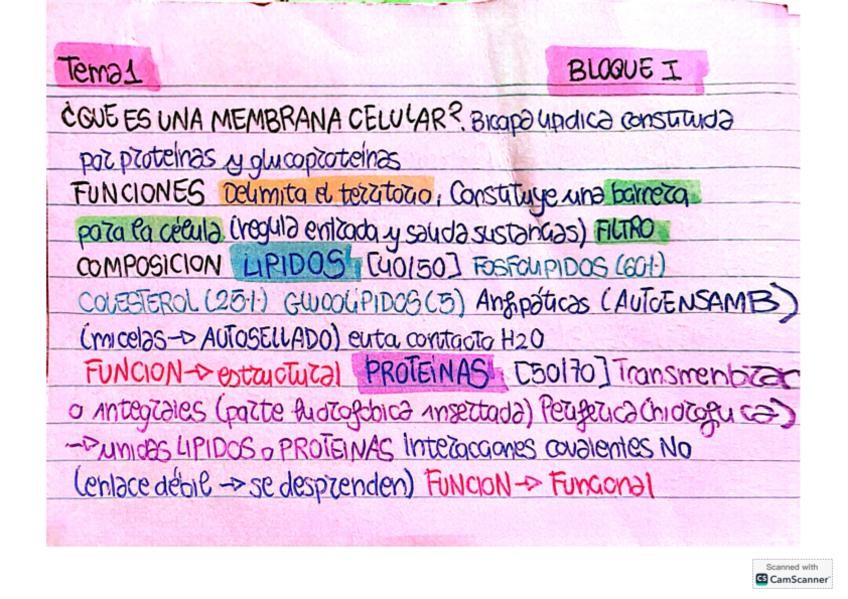 Tema 1 BLOQUE I
¿QUE ES UNA MEMBRANA CELULAR?. Bicapa lipidica constituida
por proteínas y glucoproteínas
FUNCIONES Delimita el territorio, Constituye una barrera
para la célula (regula entrada y salida sustancias) FILTRO
COMPOSICION LIPIDOS [40/50] FOSFOLIPIDOS (60%)
COLESTEROL (25%) GLUCOLÍPIDOS (5) Anfipáticas (AUTOENSAMB)
(micelas → AUTOSELLADO) evita contacto H2O
FUNCION → estructural PROTEÍNAS [50/70] Transmembrar
o integrales (parte hidrofóbica insertada) Periferica (hidrofílica)
→ unidas LIPIDOS o PROTEINAS Interacciones covalentes No
(enlace débil → se desprenden) FUNCION → Funcional
Scanned with
CS CamScanner